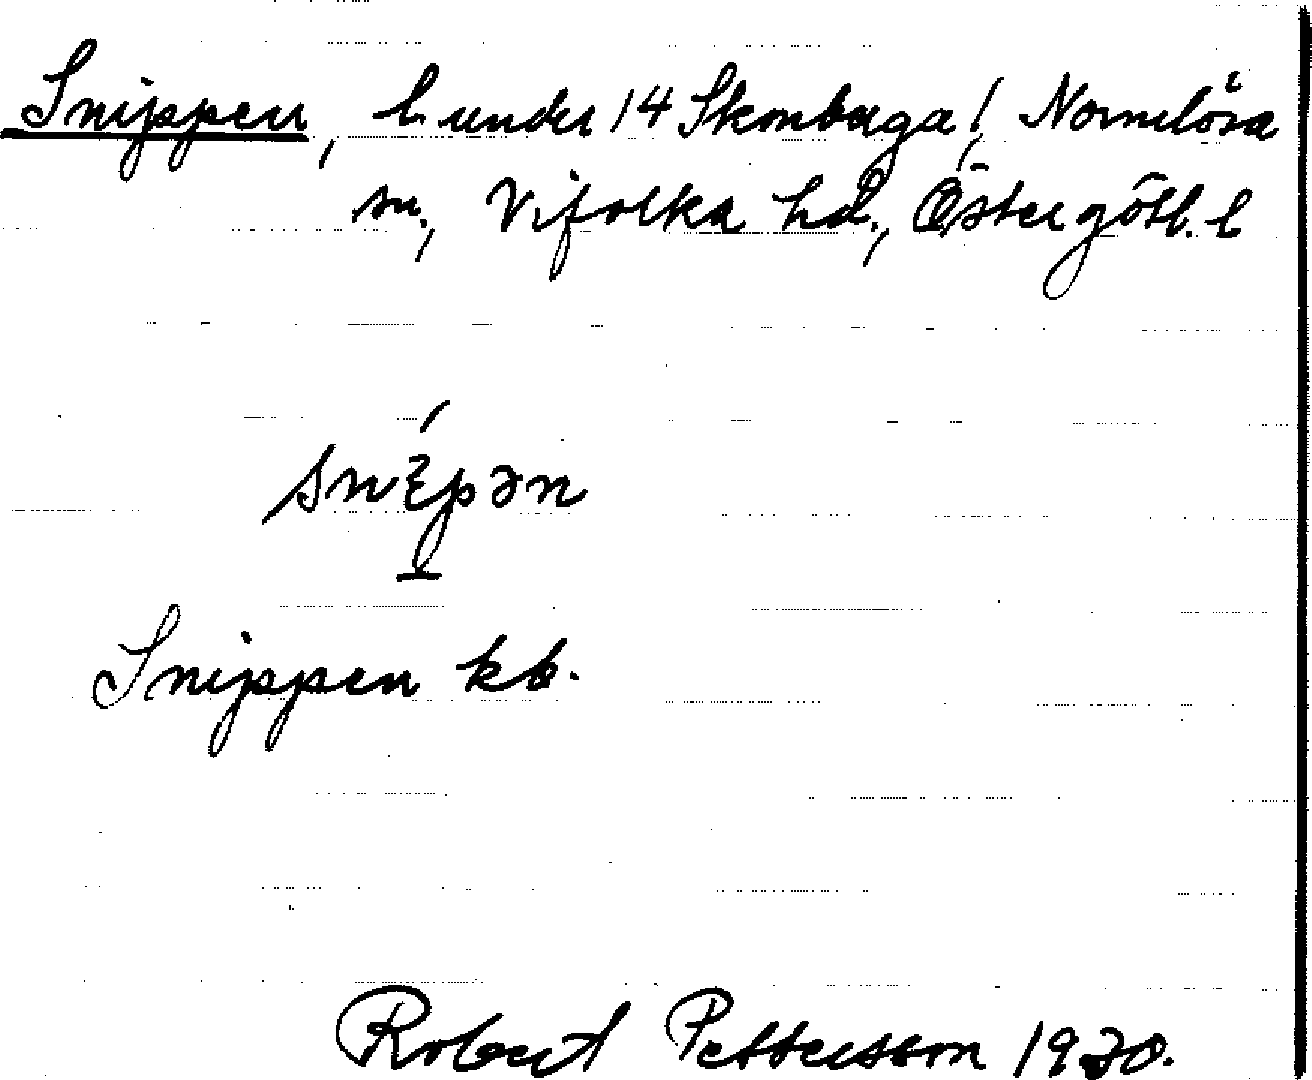 Snippen, l. under 14 Skonberga!, Normlösa
sn., Vifolka hd., Östergötl. l
snɛ́pən
Snippen kb.
Robert Pettersson 1930.